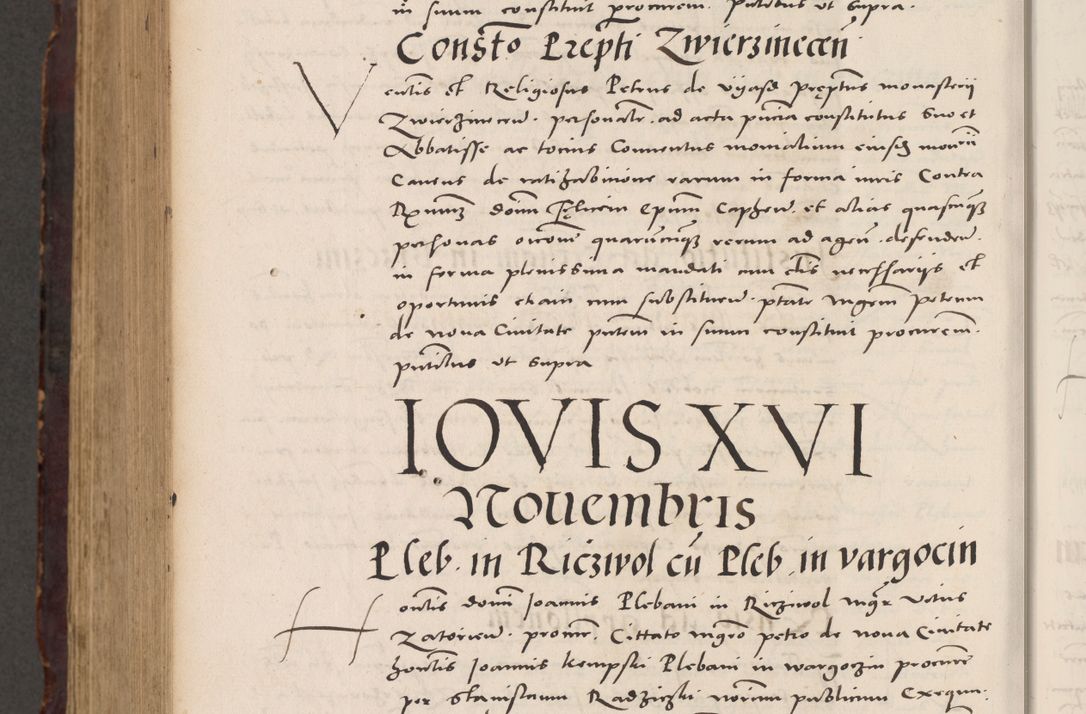 in suum constituit procurem. putibus ut supra.
Consto Prepti Zwierzinecen
Venlis et Religiosus Petrus de vijasd preptus monasterij
Zwierzinecen. personalr. ad acta pncia constitutus suo et
Abbatisse ac tocius Conuentus monialium eiusd monrii
Caueus de ratihabinione rarum in forma iuris Contra
Rxnum domin Felicem Epum Caphen. et alias quascunq
personas oicom quarucuq rerum ad agen. defenden.
in forma plenissima mandati cum clis necessarijs et
oportunis etiam cum substituen. ptate mgrm petrum
de noua Ciuitate putem in suum constituit procurem.
putibus ut supra
IOVIS XVI
Nouembris
Pleb. in Riczivol cu Pleb. in vargocin
Honlis domini Joannis Plebani in Ricziwol mgr Vitus
Zatorien. procur. Cittato mgro petro de noua Ciuitate
honlis Joannis kempski Plebani in wargoczin procure
per stanislaum Radziczki norium publicum Exequu.